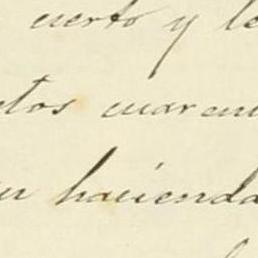 cierto y le
tos cuaren
hacienda